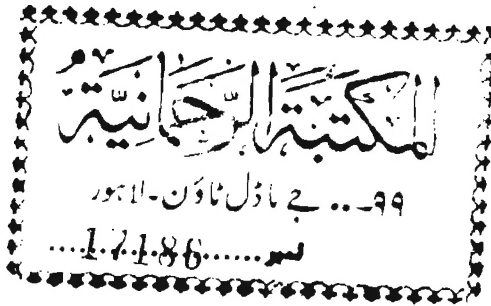 المکتبۃ الرحمانیۃ
۹۹ـ.. جے ماڈل ٹاؤن ـ لاہور
نمبر......17186......